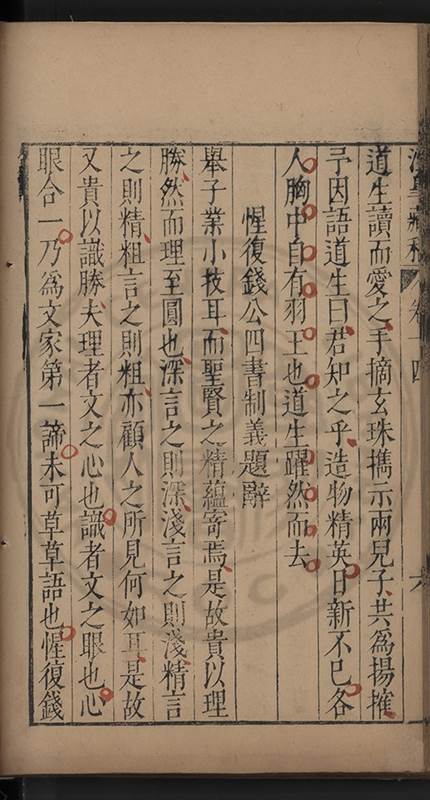 道生讀而愛之手摘玄珠擕示兩兒子共為揚搉
予因語道生曰君知之乎造物精英日新不已各
人胸中自有羽王也道生躍然而去
惺復錢公四書制義題辭
舉子業小技耳而聖賢之精蘊寄焉是故貴以理
勝然而理至圓也深言之則深淺言之則淺精言
之則精粗言之則粗亦顧人之所見何如耳是故
又貴以識勝夫理者文之心也識者文之眼也心
眼合一乃為文家第一諦未可草草語也惺復錢